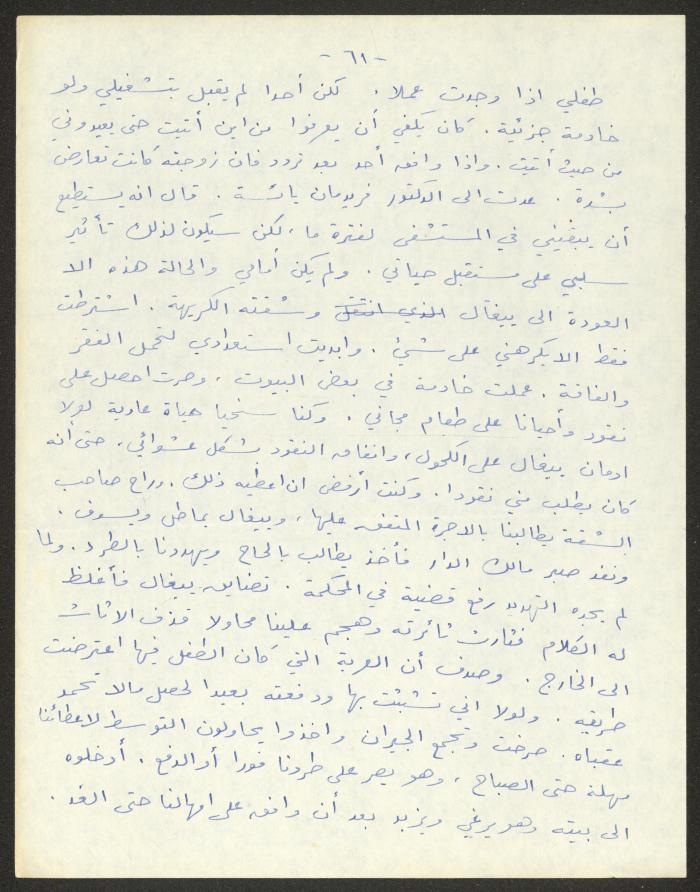 - ٦١ -
طفلي اذا وجدت عملا. لكن أحدا لم يقبل بتشغيلي ولو
خادمة جزئية. كان يكفي أن يعرفوا من اين أتيت حتى يعيدوني
من حيث أتيت. واذا وافق أحد بعد تردد فان زوجته كانت تعارض
بشدة. عدت الى الدكتور فريدمان يائسة. قال انه يستطيع
أن يبقيني في المستشفى لفترة ما، لكن سيكون لذلك تأثير
سلبي على مستقبل حياتي. ولم يكن أمامي والحالة هذه الا
العودة الى بيغال الذي انتقل وشقته الكريهة. اشترطت
فقط الا يكرهني على شيئ. وابديت استعدادي لتحمل الفقر
والفاقة. عملت خادمة في بعض البيوت، وصرت احصل على
نقود وأحيانا على طعام مجاني. وكنا سنحيا حياة عادية لولا
ادمان بيغال على الكحول، وانفاقه النقود بشكل عشوائي، حتى أنه
كان يطلب مني نقودا. وكنت أرفض ان اعطيه ذلك. وراح صاحب
الشقة يطالبنا بالاجرة المتفق عليها، وبيغال يماطل ويسوف.
ونفد صبر مالك الدار فأخذ يطالب بالحاح ويهددنا بالطرد. ولما
لم يجده التهديد رفع قضية في المحكمة. تضايق بيغال فأغلظ
له الكلام فثارت ثائرته وهجم علينا محاولا قذف الاثاث
الى الخارج. وصدف أن العربة التي كان الطفل فيها اعترضت
طريقه. ولولا اني تشبثت بها ودفعته بعيدا لحصل مالا تحمد
عقباه. صرخت وتجمع الجيران واخذوا يحاولون التوسط لاعطائنا
مهلة حتى الصباح، وهو يصر على طردنا فورا أو الدفع. أدخلوه
الى بيته وهو يرغي ويزبد بعد أن وافق على امهالنا حتى الغد.